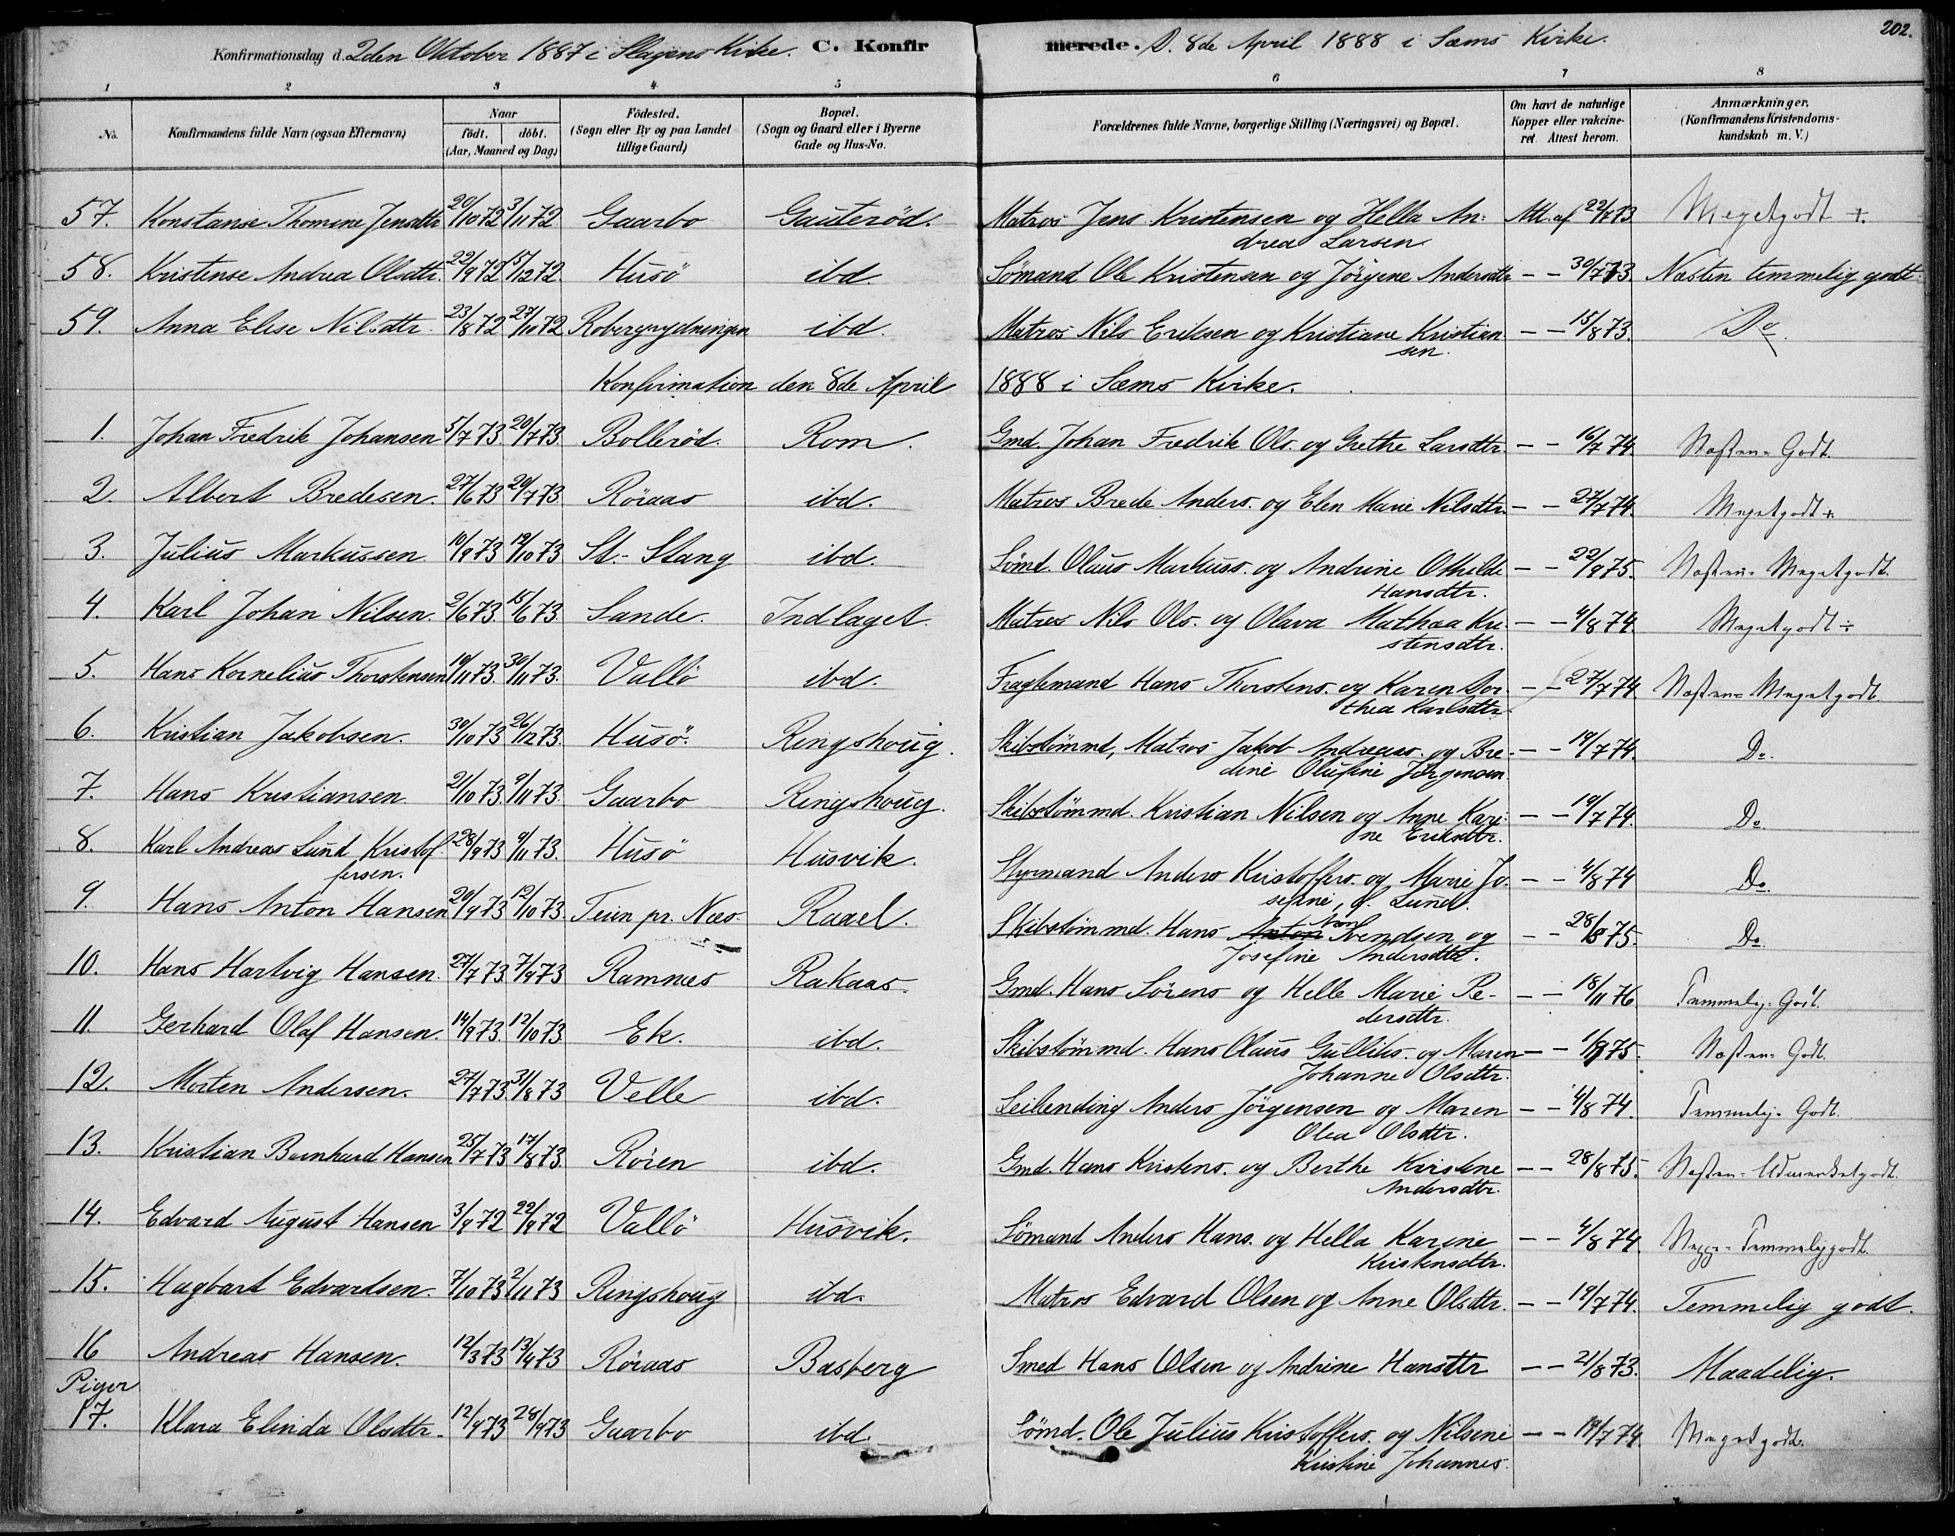 Konfirmationsdag d. 2den Oktober 1887 i Slagens Kirke. C. Konfirmerede. D. 8de April 1888 i Sæms Kirke. 202.
1 2 3 4. 5 6 7 8
No. Konfirmandens fulde Navn (ogsaa Efternavn) Naar født. døbt. (Aar, Maaned og Dag) Fødested. (Sogn eller By og paa Landet tillige Gaard) Bopæl. (Sogn og Gaard eller i Byerne Gade og Hus-No. Forældrenes fulde Navne, borgerlige Stilling (Næringsvei) og Bopæl. Om havt de naturlige Kopper eller vakcineret. Attest herom. Anmærkninger. (Konfirmandens Kristendomskundskab m. V.)
57. Konstanse Thomine Jensdtr 20/10 72 3/11 72 Gaarbo Gauterød. Matros Jens Kristensen og Hella An- Att. af 22/8 73 Megetgodt ÷.
drea Larsen
58. Kristense Andrea Olsdtr. 22/9 72 5/12 72. Husö ibd. Sömand Ole Kristensen og Jörgine Andersdtr — — 30/7 73. Næsten temmelig godt.
59. Anna Elise Nilsdtr. 23/8 72 27/10 72 Robergrydningen ibd. Matros Nils Eriksen og Kristiane Kristian — — 15/8 73. Do
sen.
Konfirmation den 8de April 1888 i Sæms Kirke.
1. Johan Fredrik Johansen 5/7 73. 20/7 73. Bolleröd. Rom. Gmd. Johan Fredrik Ols. og Grethe Larsdtr. — — 16/7 74. Næsten Godt.
2. Albert Bredesen. 27/6 73 20/7 73. Röraas ibd. Matros Brede Anders. og Elen Marie Nilsdtr. — — 27/7 74. Megetgodt ÷
3. Julius Markussen. 10/9 73 19/10 73 St. Stang ibd. Sömd. Olaus Markuss. og Andrine Othilde — — 22/9 75. Næsten Megetgodt.
Hansdtr.
4. Karl Johan Nilsen. 2/6 73. 15/6 73. Sande. Indlaget. Matros Nils Ols. og Olava Mathea Kri- — — 4/8 74. Megetgodt ÷
stensdtr.
5. Hans Kornelius Thorstensen 19/11 73. 30/11 73. Vallö ibd. Fragtemand Hans Thorstens. og Karen Dor- — — 27/7 74 Næsten Megetgodt.
thea Karlsdtr.
6. Kristian Jakobsen. 30/10 73 26/12 73. Husö. Ringshoug. Skibstømmd, Matros Jakob Andreass. og Bre- — — 19/7 74. Do.
dine Olufine Jörgensen
7. Hans Kristiansen 21/10 73 9/11 73. Gaarbo Ringshoug. Skibstømmd. Kristian Nilsen og Anne Kari- — — 19/7 74. Do.
ne Eriksdtr.
8. Karl Andreas Lund Kristof- 28/9 73 9/11 73. Husö Husvik. Styrmand Anders Kristoffers. og Marie Jo- — — 4/8 74 Do.
fersen. sefine, f. Lund.
9. Hans Anton Hansen 20/9 73 12/10 73. Teien pr. Næs Raael. Skibstømmd. Hans Svendsen og — — 28/8 75. Do.
Josefine Andersdtr.
10. Hans Hartvig Hansen. 27/7 73 7/9 73 Ramnes Rakaas. Gmd. Hans Sörens og Helle Marie Pe- — — 18/11 76 Temmelig Godt.
dersdtr.
11. Gerhard Olaf Hansen. 14/9 73. 12/10 73. Ek. ibd. Skibstømmd. Hans Olaus Gulliks. og Maren — — Næsten Godt.
Johanne Olsdtr.
12. Morten Andersen. 27/7 73. 31/8 73 Velle ibd. Leilending Anders Jörgensen og Maren — — 4/8 74. Temmelig Godt.
Olea Olsdtr.
13. Kristian Bernhard Hansen 25/7 73 17/8 73. Rören ibd. Gmd. Hans Kristens. og Berthe Kristine — — 28/8 75. Næsten Udmerketgodt.
Andersdtr.
14. Edvard August Hansen 3/9 72 22/9 72 Vallö Husvik. Sömand Anders Hans. og Hella Karine — — 4/8 74. Temmeliggodt.
Kristensdtr.
15. Hagbart Edvardsen. 7/10 73 2/11 73 Ringshoug ibd. Matros Edvard Olsen og Anne Olsdtr. — — 19/7 74. Temmelig godt.
16 Andreas Hansen. 12/3 73 13/4 73 Röraas Basberg Smed Hans Olsen og Andrine Hansdtr — — 21/8 73. Maadelig.
Piger
17. Klara Elinda Olsdtr. 12/9 73 28/9 73 Gaarbo ibd. Sömd. Ole Julius Kristoffers. og Nilsine — — 19/7 74. Megetgodt.
Kristine Johannes.